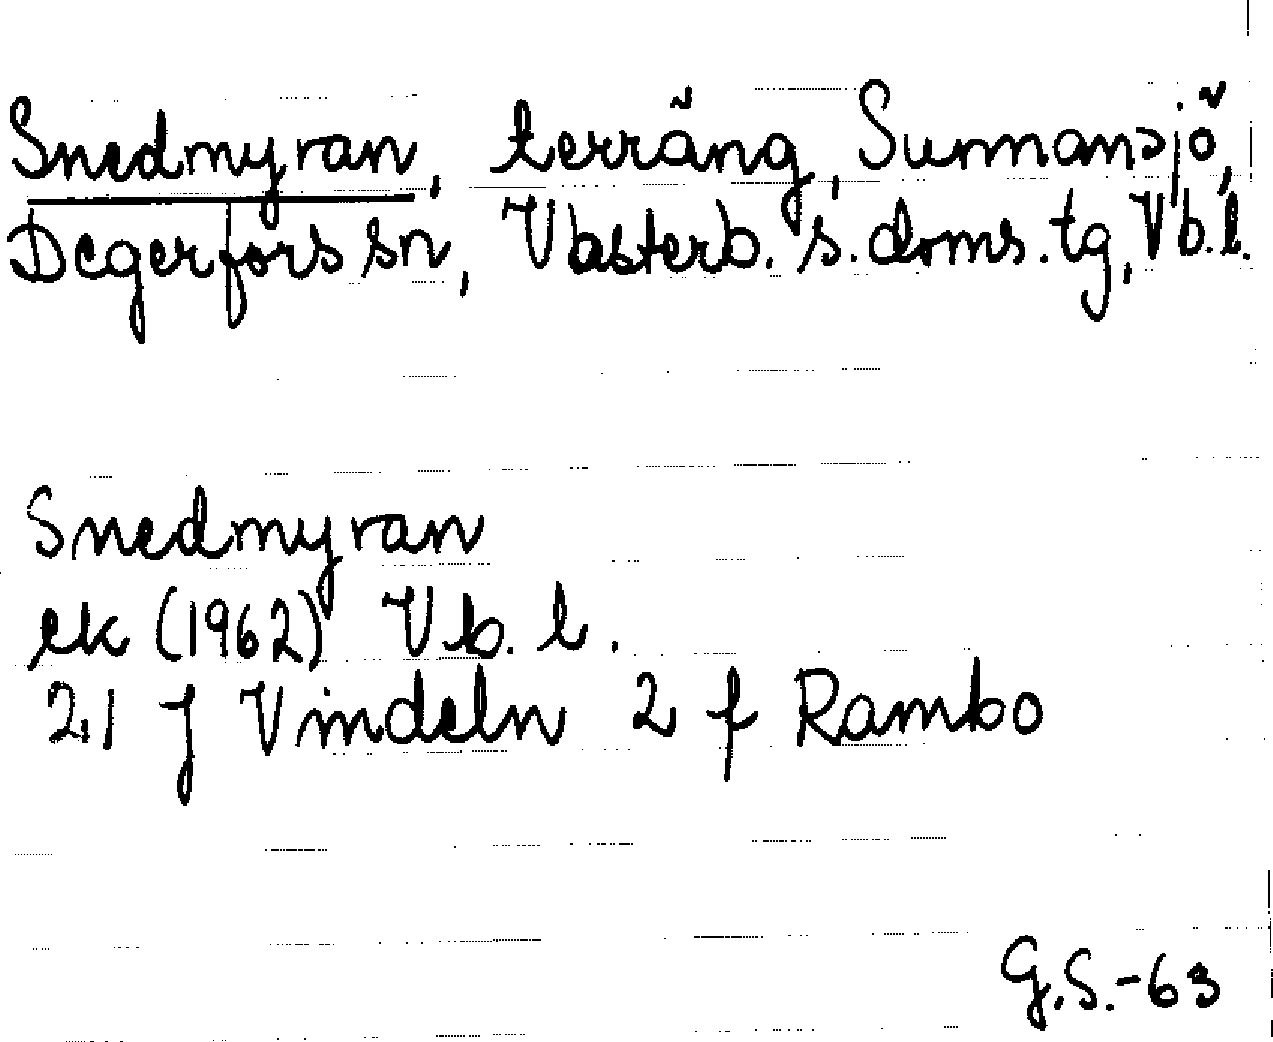 Snedmyran, terräng, Surmansjö,
Degerfors sn, Vbasterb. s. doms. tg, Vb. l.
Snedmyran
ek (1962) Vb. l.
21 J Vindeln 2 f Rambo
G.S.-63